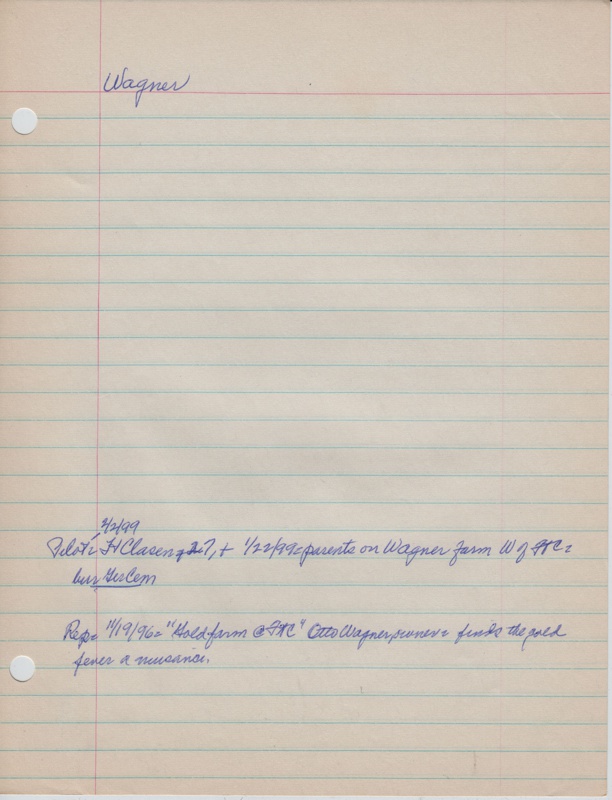 Wagner
2/2/99
Pilot= H Clasen, 27, + 1/22/99= parents on Wagner farm W of FtC=
bur GerCem
Rep= 11/19/96= "Gold farm @ FtC" Otto Wagner, owner= finds the gold
fever a nuisance.